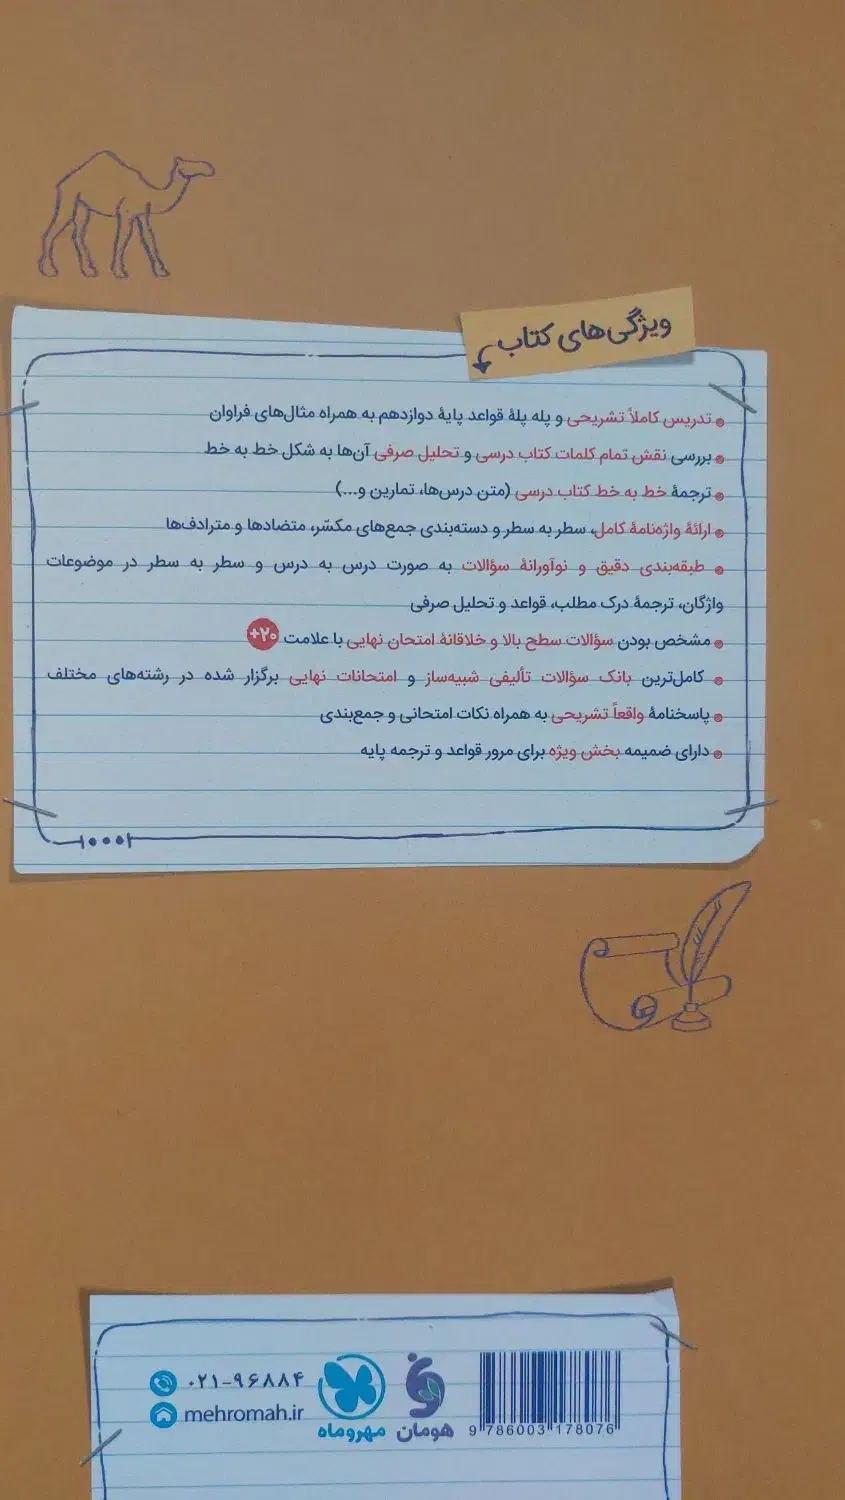 ویژگی‌های کتاب
تدریس کاملاً تشریحی و پله پلهٔ قواعد پایهٔ دوازدهم به همراه مثال‌های فراوان
بررسی نقش تمام کلمات کتاب درسی و تحلیل صرفی آن‌ها به شکل خط به خط
ترجمهٔ خط به خط کتاب درسی (متن درس‌ها، تمارین و...)
ارائهٔ واژه‌نامهٔ کامل، سطر به سطر و دسته‌بندی جمع‌های مکسّر، متضادها و مترادف‌ها
طبقه‌بندی دقیق و نوآورانهٔ سؤالات به صورت درس به درس و سطر به سطر در موضوعات
واژگان، ترجمهٔ درک مطلب، قواعد و تحلیل صرفی
مشخص بودن سؤالات سطح بالا و خلاقانهٔ امتحان نهایی با علامت +۲۰
کامل‌ترین بانک سؤالات تألیفی شبیه‌ساز و امتحانات نهایی برگزار شده در رشته‌های مختلف
پاسخنامهٔ واقعاً تشریحی به همراه نکات امتحانی و جمع‌بندی
دارای ضمیمه بخش ویژه برای مرور قواعد و ترجمه پایه
۰۲۱-۹۶۸۸۴
mehromah.ir
مهروماه
هومان
9 786003 178076